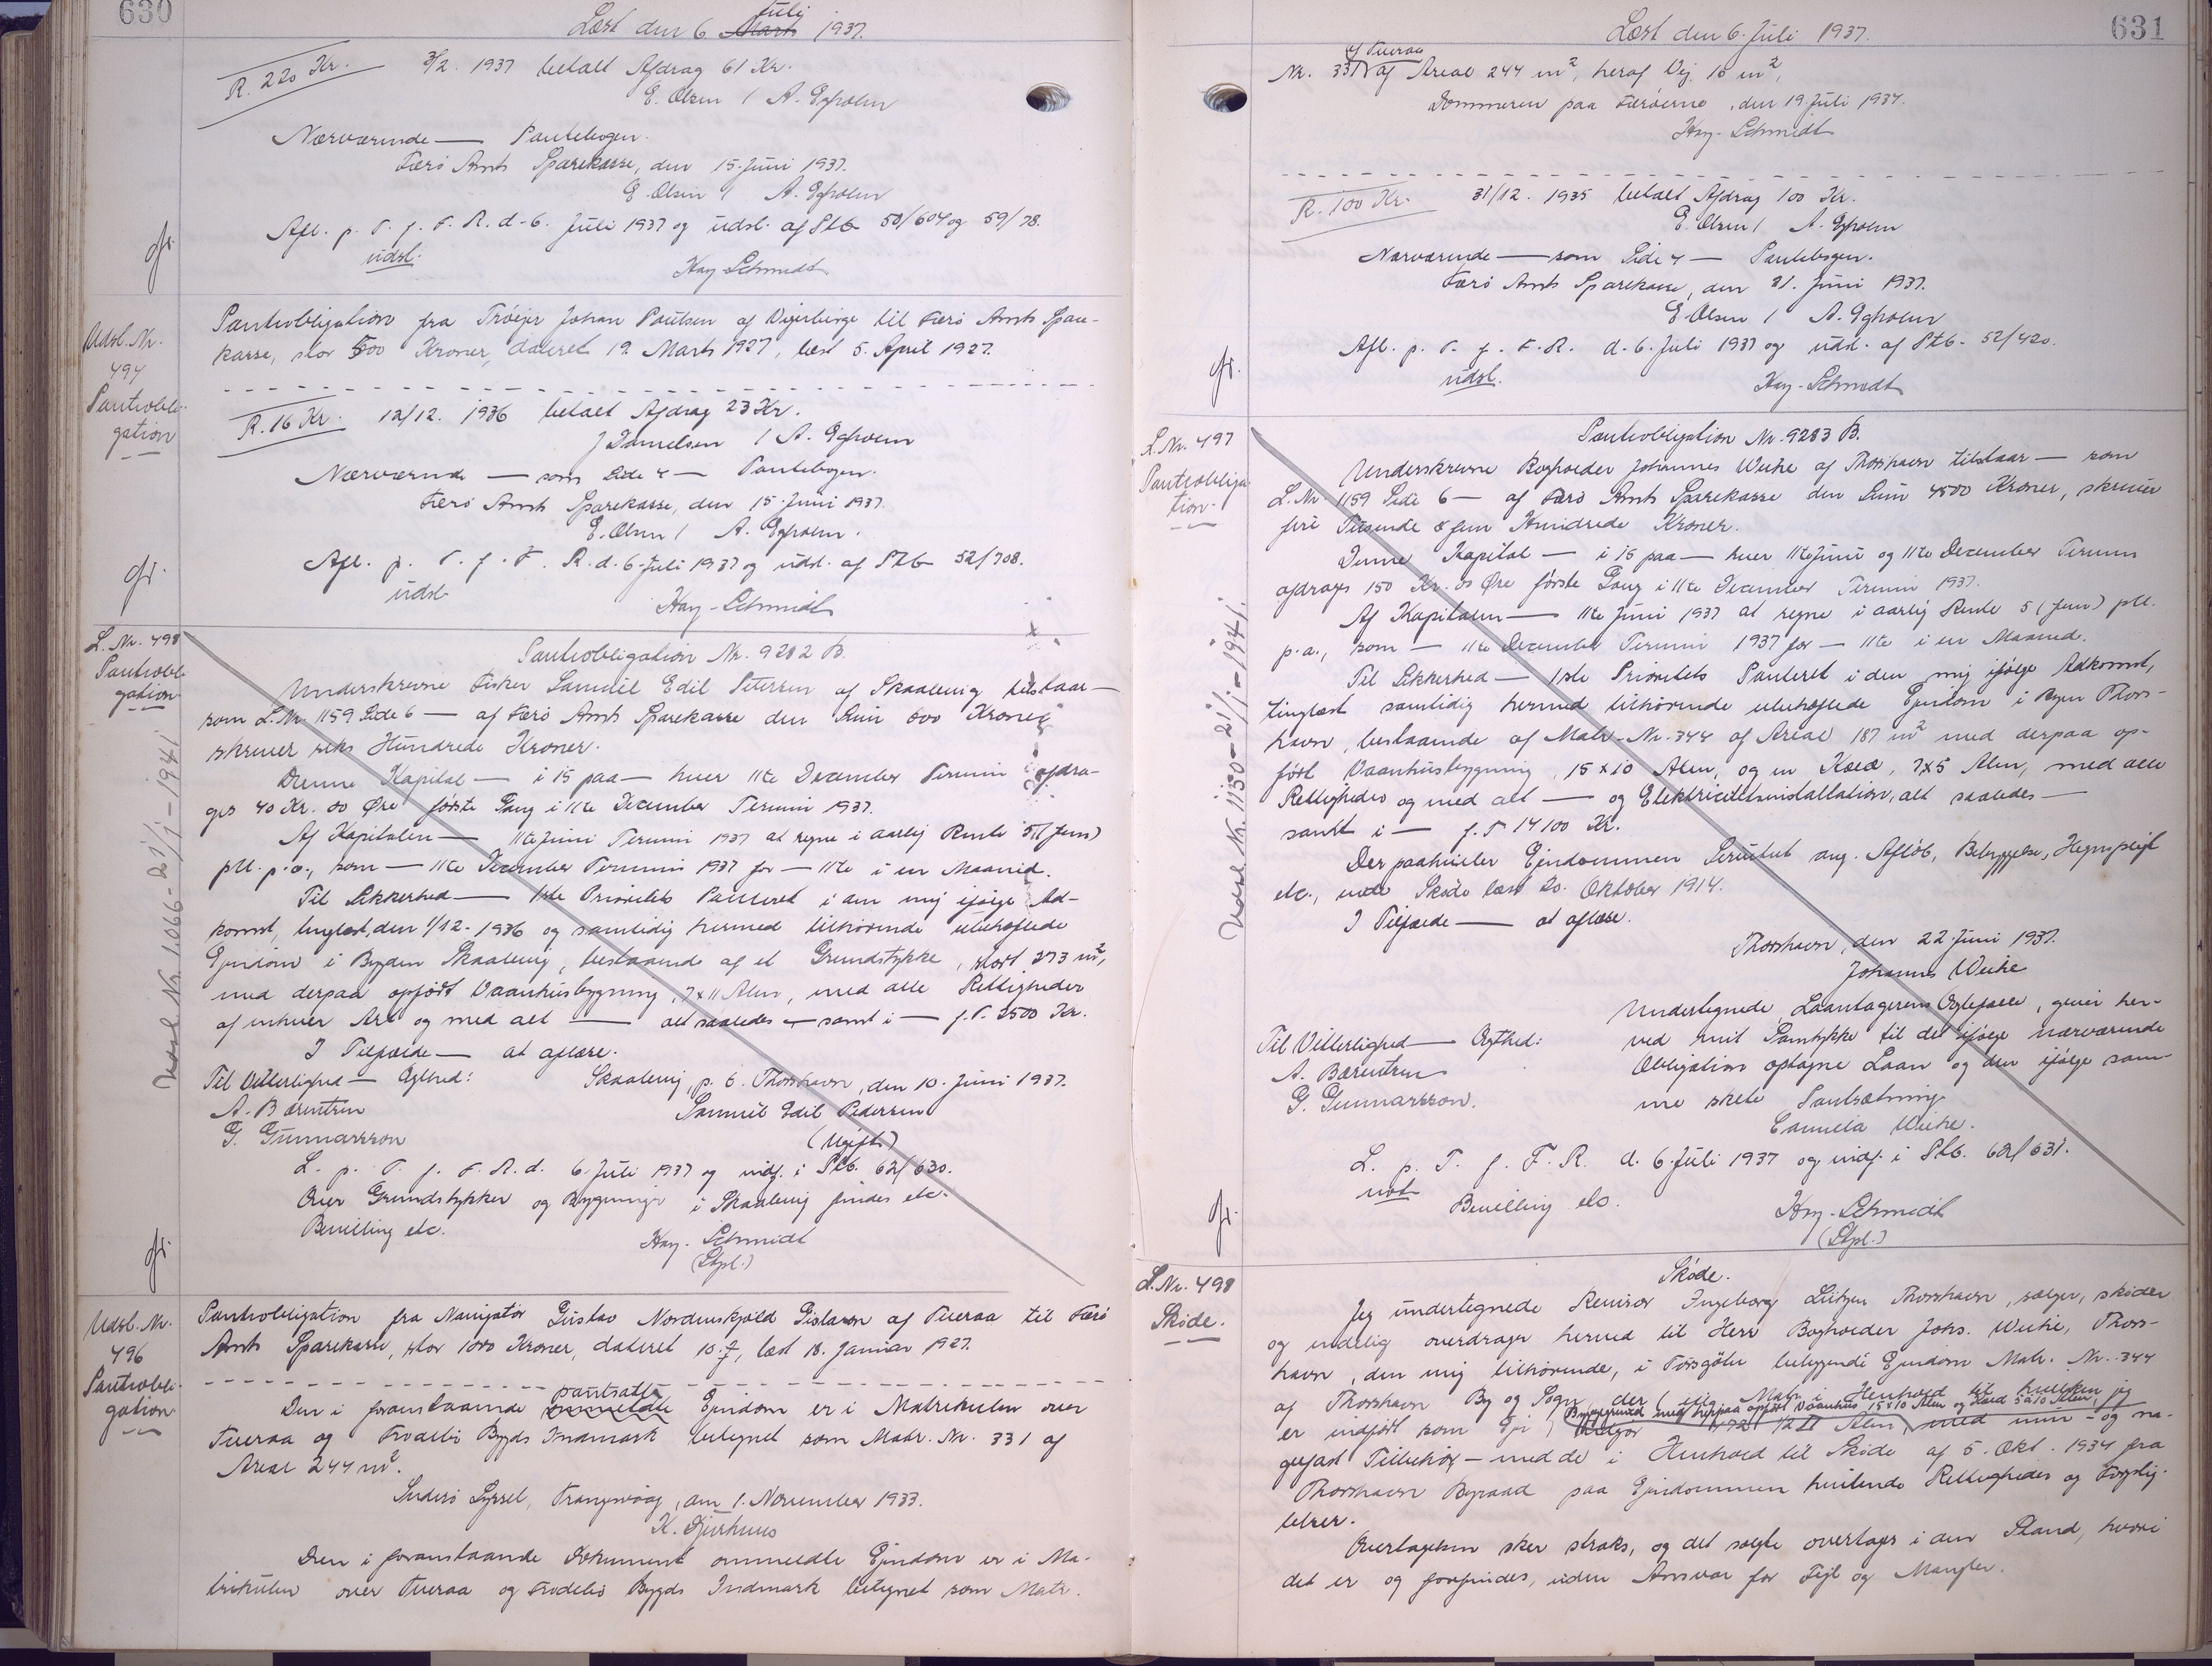 630
Læst den 6 Marts Juli 1937.
R. 220 Kr. 3/2. 1937 betalt Afdrag 61 Kr.
E. Olsen / A. Egholm
Nærværende — Pantebogen.
Færø Amts Sparekasse, den 15. Juni 1937.
E. Olsen / A. Egholm
Afl. p. T. f. F. R. d. 6. Juli 1937 og udsl. af Ptb 50/604 og 59/78.
udsl.
Kay Schmidt
Udsl. Nr.
494
Pantobli-
gation
Pantobligation fra Trøejer Johan Poulsen af Vejerbirge til Færø Amts Spare-
kasse, stor 500 Kroner, dateret 19. Marts 1927, læst 5. April 1927.
R. 16 Kr. 12/12. 1936 betalt Afdrag 23 Kr.
J Danielsen / A. Egholm
Nærværende — som Side 4 — Pantebogen.
Færø Amts Sparekasse, den 15 Juni 1937.
E. Olsen / A. Egholm.
Afl. p. T. f. F. R. d. 6. Juli 1937 og udsl. af Ptb 52/708.
udsl
Kay-Schmidt
L. Nr. 498
Pantobli-
gation
Pantobligation Nr. 9282 B.
Underskrevne Fisker Samuel Edil Petersen af Skaalevig tilstaar —
som L. Nr 1159 Side 6 — af Færø Amts Sparekasse den Sum 600 Kroner
skriver seks Hundrede Kroner.
Denne Kapital — i 15 paa — hver 11te December Termin afdra-
ges 40 Kr. 00 Øre første Gang i 11te December Termin 1937.
Af Kapitalen — 11te Juni Termin 1937 at regne i aarlig Rente 5 (fem)
pCt. p.a., som — 11te December Termin 1937 for — 11te i en Maaned.
Til Sikkerhed — 1ste Prioritets Panteret i den mig ifølge Ad-
komst, tinglæst, den 1/12-1936 og samtidig hermed tilhørende ubehæftede
Ejendom i Bygden Skaalevig, bestaaende af et Grundstykke, stort 273 m²,
med derpaa opført Vaanhusbygning, 7 x 11 Alen, med alle Rettigheder
af enhver Art og med alt — alt saaledes — samt i — f. T. 3500 Kr.
I Tilfælde — at aflæse.
Til Vitterlighed — Ægthed: Skaalevig, p. t. Thorshavn, den 10. Juni 1937.
A. Bærentsen Samuel Edil Pedersen
G. Gunnarsson (Ugift)
L. p. T. f. F. R. d. 6. Juli 1937 og indf. i Ptb. 62/630.
Over Grundstykker og Bygninger i Skaalevig findes etc.
Bevilling etc.
Kay-Schmidt
(Stpl.)
Udsl. Nr. 1066 - 21/1 - 1941
Udsl. Nr.
496
Pantobli-
gation
Pantobligation fra Navigatør Gustav Nordenskjold Gislason af Tveraa til Færø
Amts Sparekasse, stor 1000 Kroner, dateret 10. , læst 18. Januar 1927.
Den i foranstaaende ommeldte pantsatte Ejendom er i Matrikulen over
Tveraa og Frodebø Bygds Indmark betegnet som Matr. Nr. 331 af
Areal 244 m².
Suderø Syssel, Trangisvaag, den 1. November 1933.
K. Djurhuus
Den i foranstaaende Dokument ommeldte Ejendom er i Ma-
trikulen over Tveraa og Frodebø Bygds Indmark betegnet som Matr.
631
Læst den 6. Juli 1937.
Nr. 331 af Tveraa af Areal 244 m², heraf Vej 16 m²,
Dommeren paa Færøerne, den 19 Juli 1934.
Kay-Schmidt
R. 100 Kr. 31/12. 1935 betalt Afdrag 100 Kr.
E. Olsen / A. Egholm
Nærværende — som Side 4 — Pantebogen.
Færø Amts Sparekasse, den 21. Juni 1937.
E. Olsen / A. Egholm
Afl. p. T. f. F. R. d. 6. Juli 1937 og udsl. af Ptb. 52/420.
udsl.
Kay-Schmidt
L. Nr. 497
Pantobliga-
tion.
Pantobligation Nr. 9283 B.
Underskrevne Bogholder Johannes Weihe af Thorshavn tilstaar — som
L. Nr 1159 Side 6 — af Færø Amts Sparekasse den Sum 4500 Kroner, skriver
fire Tusende & fem Hundrede Kroner.
Denne Kapital — i 15 paa — hver 11te Juni og 11te December Termin
afdrages 150 Kr. 00 Øre første Gang i 11te December Termin 1937.
Af Kapitalen — 11te Juni 1937 at regne i aarlig Rente 5 (fem) pCt.
p.a., som — 11te December Termin 1937 for — 11te i en Maaned.
Til Sikkerhed — 1ste Prioritets Panteret i den mig ifølge Adkomst,
tinglæst samtidig hermed tilhørende ubehæftede Ejendom i Byen Thors-
havn, bestaaende af Matr. Nr. 344 af Areal 187 m² med derpaa op-
ført Vaanhusbygning, 15 x 10 Alen, og en Kæld, 7x5 Alen, med alle
Rettigheder og med alt — og Elektricitetsinstallation, alt saaledes —
samt i — f. T 14100 Kr.
Der paahviler Ejendommen Servitut ang. Afløb, Bebyggelse, Hegnspligt
etc., iflg Skøde læst 20. Oktober 1914.
I Tilfælde — at aflæse.
Thorshavn, den 22. Juni 1937.
Johannes Weihe
Undertegnede Laantagerens Ægtefælle, giver her-
Til Vitterlighed — Ægthed: ved mit Samtykke til det ifølge nærværende
A. Bærentsen Obligation optagne Laan og den ifølge sam-
G. Gunnarsson. me skete Pantsætning.
Camilla Weihe.
L. p. T. f. F. R. d. 6. Juli 1937 og indf. i Ptb. 62/631.
Bevilling etc.
Kay-Schmidt
(Stpl.)
Udsl. Nr. 1130 - 21/1 - 1941.
L. Nr. 498
Skøde.
Skøde.
Jeg undertegnede Revisor Ingeborg Lützen Thorshavn, sælger, skøder
og endelig overdrager hermed til Herr Bogholder Johs. Weihe, Thors-
havn, den mig tilhørende, i Torsgøtu beliggende Ejendom Matr. Nr. 344
af Thorshavn By og Sogn, der iflg. Matr. i Henhold til hvilken jeg
er indført som Ejer, Byggegrund med herpaa opført Vaanhus 15 x 10 Alen og Gaard 5 à 10 Alen, med mur- og na-
gelfast Tilbehør — med de i Henhold til Skøde af 5. Okt. 1934 fra
Thorshavn Byraad paa Ejendommen hvilende Rettigheder og Forplig-
telser.
Overtagelsen sker straks, og det solgte overtages i den Stand, hvori
det er og forefindes, uden Ansvar for Fejl og Mangler.